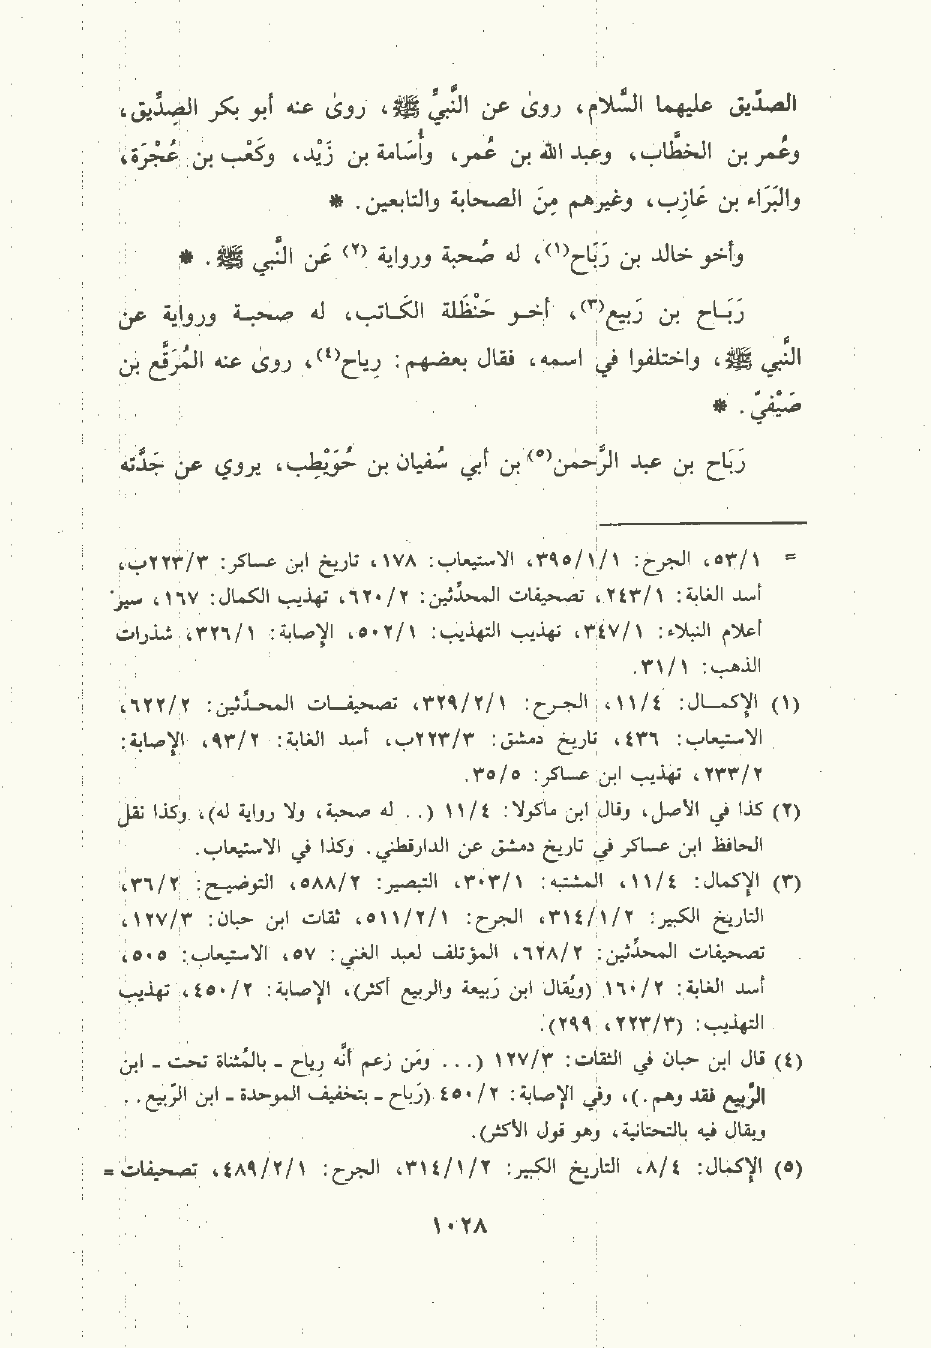 الصدّيق عليهما السَّلام، روىٰ عن النَّبيِّ ﷺ، روىٰ عنه أبو بكر الصِدِّيق،
وعُمر بن الخطَّاب، وعبد الله بن عُمر، وأُسَامة بن زَيْد، وكَعْب بن عُجْرَة،
والبَرَاء بن عَازِب، وغيرهم مِنَ الصحابة والتابعين. *
وأخو خالد بن رَبَاح(١)، له صُحبة ورواية (٢) عَن النَّبي ﷺ. *
رَبَـاح بن رَبيع(٣)، أخـو حَنْظَلة الكَاتب، له صحبـة ورواية عن
النَّبي ﷺ، واختلفوا في اسمه، فقال بعضهم: رِياح(٤)، روىٰ عنه المُرَقَّع بن
صَيْفيّ. *
رَبَاح بن عبد الرَّحمن(٥) بن أبي سُفيان بن حُوَيْطِب، يروي عن جَدَّته
= ٥٣/١، الجرح: ٣٩٥/١/١، الاستيعاب: ١٧٨، تاريخ ابن عساكر: ٢٢٣/٣ب،
أسد الغابة: ٢٤٣/١، تصحيفات المحدِّثين: ٦٢٠/٢، تهذيب الكمال: ١٦٧، سير
أعلام النبلاء: ٣٤٧/١، تهذيب التهذيب: ٥٠٢/١، الإصابة: ٣٢٦/١، شذرات
الذهب: ٣١/١.
(١) الإكمـال: ١١/٤، الجـرح: ٣٢٩/٢/١، تصحيفـات المحـدِّثين: ٦٢٢/٢،
الاستيعاب: ٤٣٦، تاريخ دمشق: ٢٢٣/٣ب، أسد الغابة: ٩٣/٢، الإصابة:
٢٣٣/٢، تهذيب ابن عساكر: ٣٥/٥.
(٢) كذا في الأصل، وقال ابن ماكولا: ١١/٤ (. . له صحبة، ولا رواية له)، وكذا نقل
الحافظ ابن عساكر في تاريخ دمشق عن الدارقطني. وكذا في الاستيعاب.
(٣) الإكمال: ١١/٤، المشتبه: ٣٠٣/١، التبصير: ٥٨٨/٢، التوضيـح: ٣٦/٢،
التاريخ الكبير: ٣١٤/١/٢، الجرح: ٥١١/٢/١، ثقات ابن حبان: ١٢٧/٣،
تصحيفات المحدِّثين: ٦٢٨/٢، المؤتلف لعبد الغني: ٥٧، الاستيعاب: ٥٠٥،
أسد الغابة: ١٦٠/٢ (ويُقال ابن رَبيعة والربيع أكثر)، الإصابة: ٤٥٠/٢، تهذيب
التهذيب: (٢٢٣/٣، ٢٩٩).
(٤) قال ابن حبان في الثقات: ١٢٧/٣ (. . . ومَن زعم أنَّه رِياح ـ بالمُثناة تحت ـ ابن
الرَّبيع فقد وهم.)، وفي الإصابة: ٤٥٠/٢ (رَباح ـ بتخفيف الموحدة ـ ابن الرّبيع. .
ويقال فيه بالتحتانية، وهو قول الأكثر).
(٥) الإكمال: ٨/٤، التاريخ الكبير: ٣١٤/١/٢، الجرح: ٤٨٩/٢/١، تصحيفات =
١٠٢٨